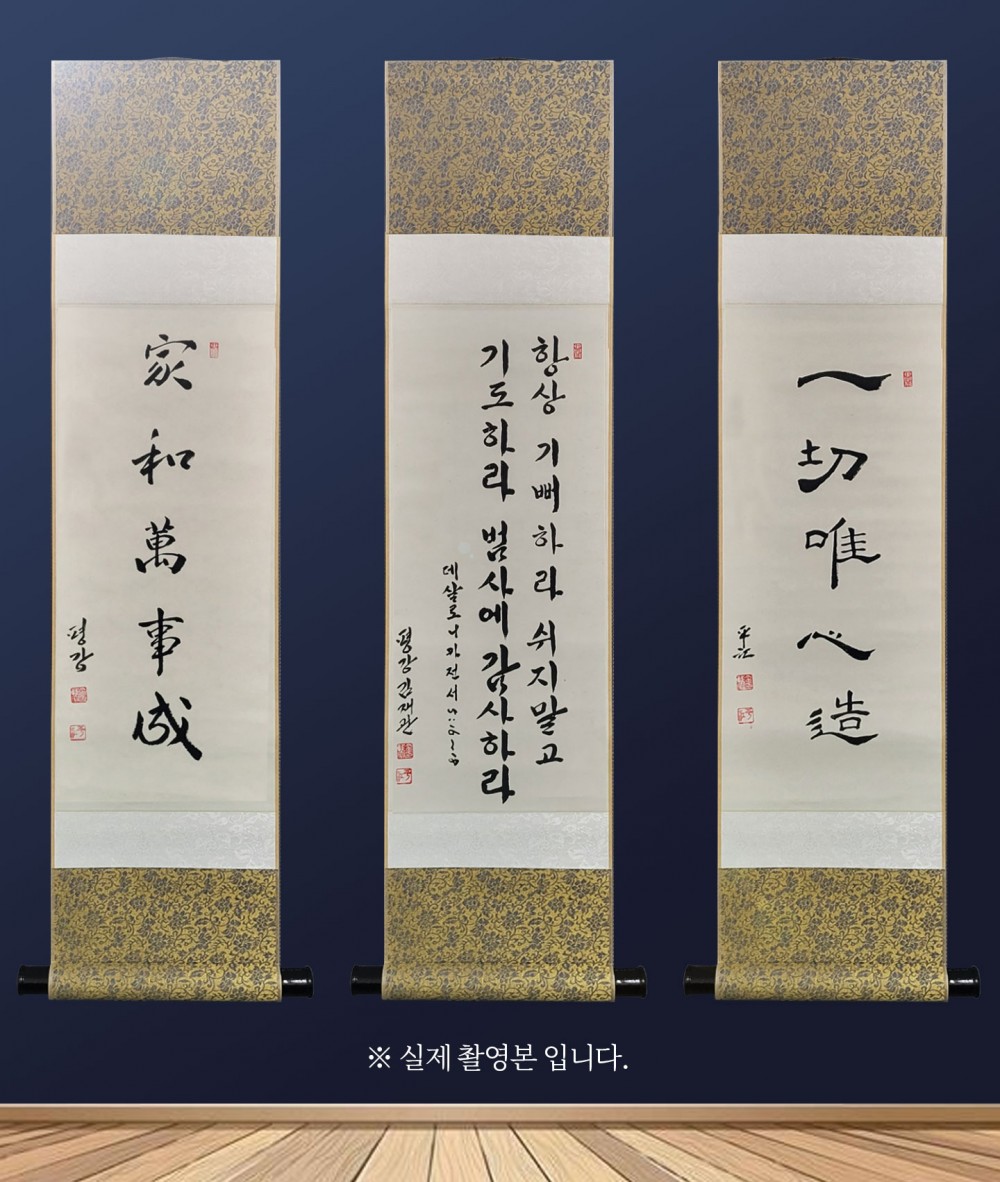 家和萬事成
평강
항상 기뻐하라 쉬지말고
기도하라 범사에 감사하라
데살로니가전서
평강 김재관
一切唯心造
平江
※ 실제 촬영본 입니다.